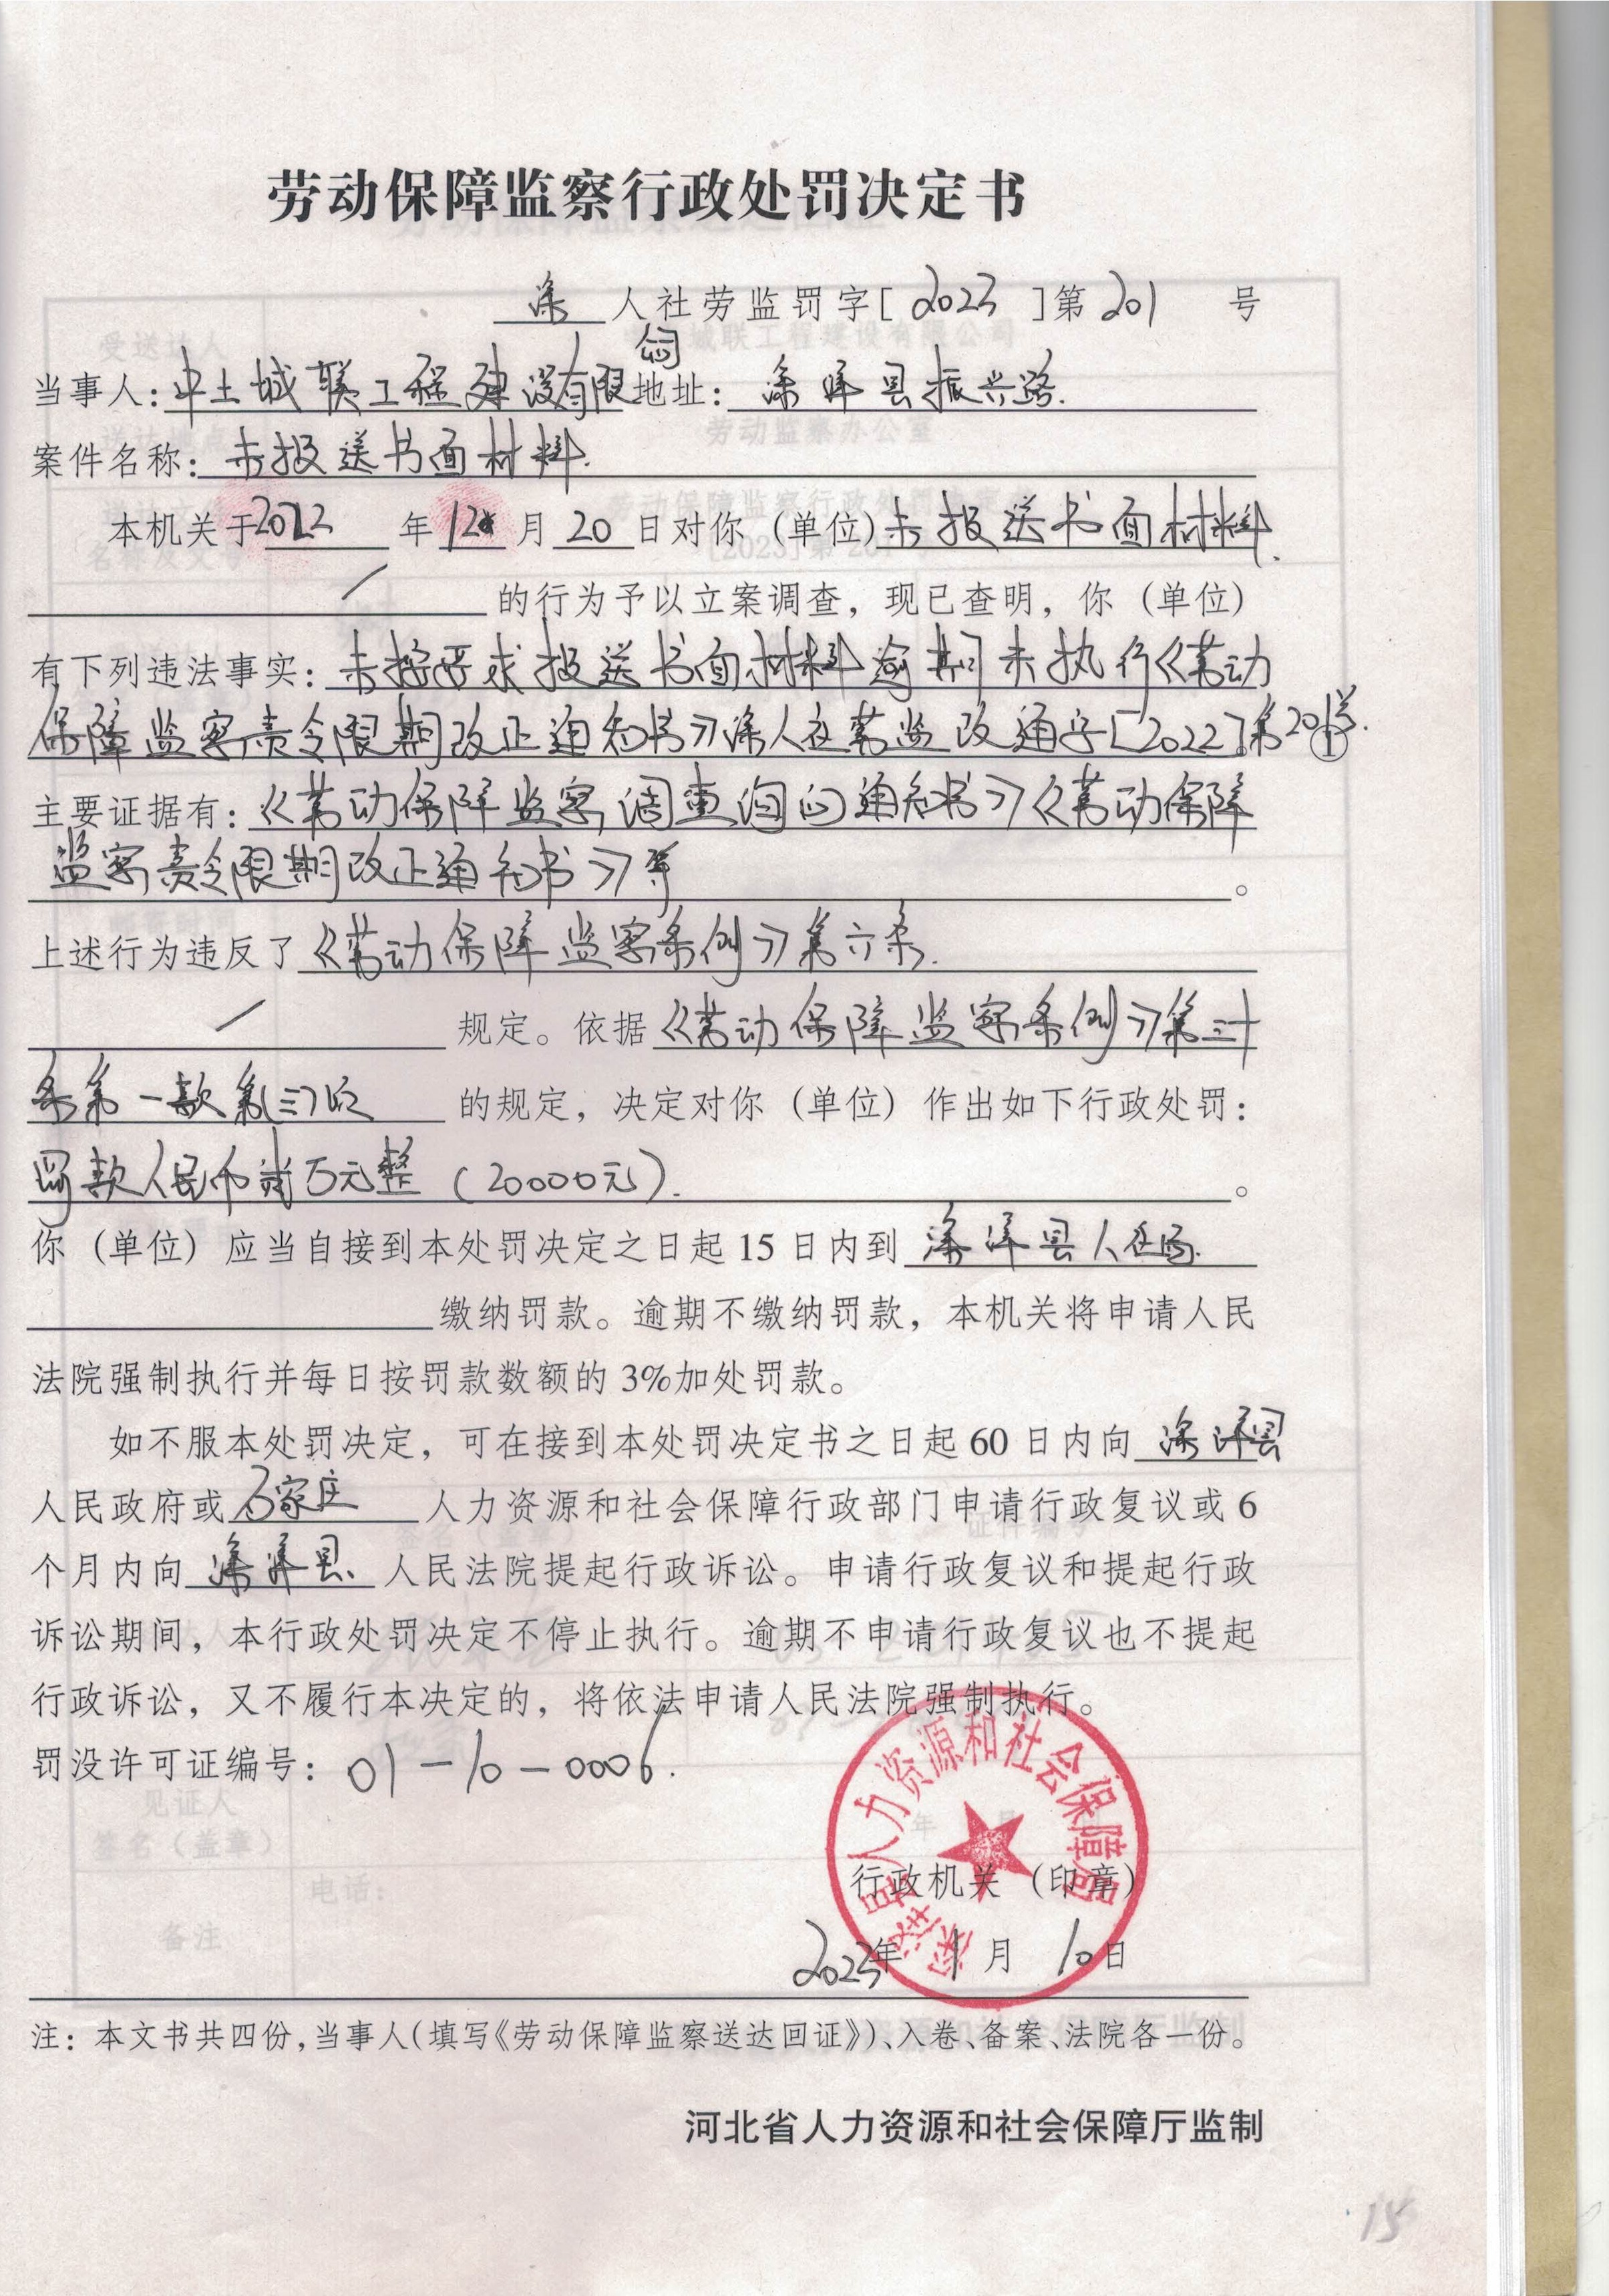 劳动保障监察行政处罚决定书
深人社劳监罚字[2023]第201号
当事人:中土城联工程建设有限公司地址:深泽县振兴路.
案件名称:未报送书面材料.
本机关于2022年12月20日对你(单位)未报送书面材料.
/的行为予以立案调查,现已查明,你(单位)
有下列违法事实:未按要求报送书面材料逾期未执行《劳动
保障监察责令限期改正通知书》深人社劳监改通字[2022]第201号.
主要证据有:《劳动保障监察调查询问通知书》《劳动保障
监察责令限期改正通知书》等。
上述行为违反了《劳动保障监察条例》第六条.
/规定。依据《劳动保障监察条例》第三十
条第一款第(三)项的规定,决定对你(单位)作出如下行政处罚:
罚款人民币贰万元整(20000元).。
你(单位)应当自接到本处罚决定之日起15日内到深泽县人社局.
缴纳罚款。逾期不缴纳罚款,本机关将申请人民
法院强制执行并每日按罚款数额的3%加处罚款。
如不服本处罚决定,可在接到本处罚决定书之日起60日内向深泽县
人民政府或石家庄人力资源和社会保障行政部门申请行政复议或6
个月内向深泽县人民法院提起行政诉讼。申请行政复议和提起行政
诉讼期间,本行政处罚决定不停止执行。逾期不申请行政复议也不提起
行政诉讼,又不履行本决定的,将依法申请人民法院强制执行。
罚没许可证编号:01-10-0006.
深泽县人力资源和社会保障局
行政机关(印章)
2023年1月10日
注:本文书共四份,当事人(填写《劳动保障监察送达回证》)、入卷、备案、法院各一份。
河北省人力资源和社会保障厅监制
15